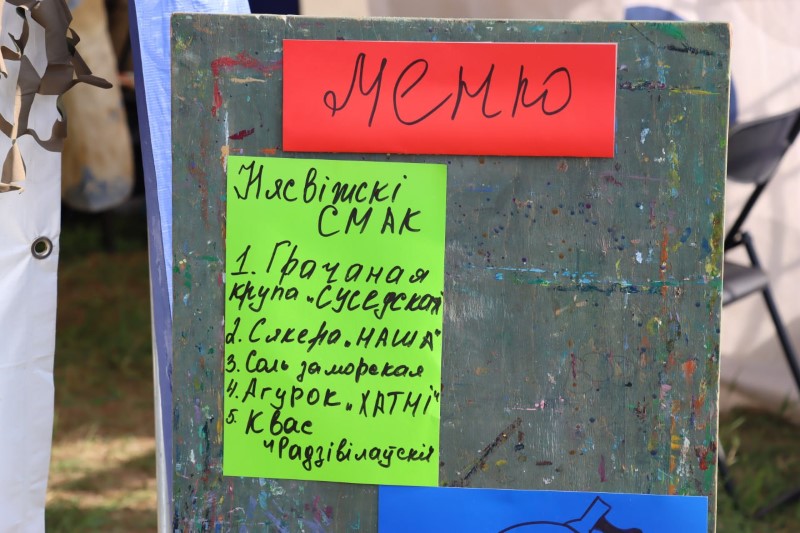 Меню
Нясвіжскі
СМАК
1. Грачаная
крупа „Суседская
2. Сякера „НАША"
3. Соль заморская
4. Агурок „ХАТНІ"
5. Квас
"Радзівілаўскі"